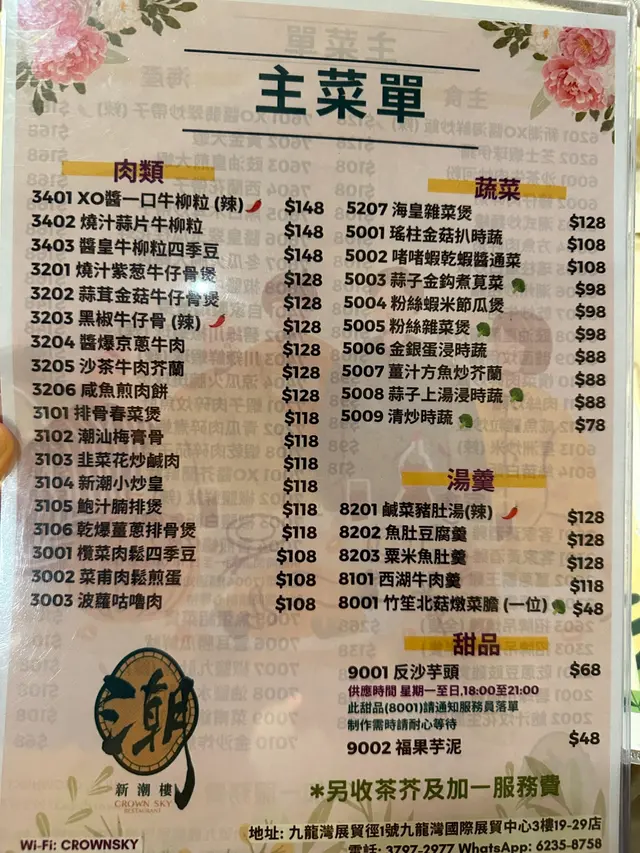 主菜單
肉類
3401 XO醬一口牛柳粒 (辣) $148
3402 燒汁蒜片牛柳粒 $148
3403 醬皇牛柳粒四季豆 $148
3201 燒汁紫葱牛仔骨煲 $128
3202 蒜茸金菇牛仔骨煲 $128
3203 黑椒牛仔骨 (辣) $128
3204 醬爆京蔥牛肉 $128
3205 沙茶牛肉芥蘭 $128
3206 咸魚煎肉餅 $128
3101 排骨春菜煲 $118
3102 潮汕梅膏骨 $118
3103 韭菜花炒鹹肉 $118
3104 新潮小炒皇 $118
3105 鮑汁腩排煲 $118
3106 乾爆薑蔥排骨煲 $118
3001 欖菜肉鬆四季豆 $108
3002 菜甫肉鬆煎蛋 $108
3003 波蘿咕嚕肉 $108
蔬菜
5207 海皇雜菜煲 $128
5001 瑤柱金菇扒時蔬 $108
5002 啫啫蝦乾蝦醬通菜 $108
5003 蒜子金鈎煮莧菜 $98
5004 粉絲蝦米節瓜煲 $98
5005 粉絲雜菜煲 $98
5006 金銀蛋浸時蔬 $88
5007 薑汁方魚炒芥蘭 $88
5008 蒜子上湯浸時蔬 $88
5009 清炒時蔬 $78
湯羹
8201 鹹菜豬肚湯(辣) $128
8202 魚肚豆腐羹 $128
8203 粟米魚肚羹 $128
8101 西湖牛肉羹 $118
8001 竹笙北菇燉菜膽 (一位) $48
甜品
9001 反沙芋頭 $68
供應時間 星期一至日,18:00至21:00
此甜品(8001)請通知服務員落單
制作需時請耐心等待
9002 福果芋泥 $48
潮
新潮樓
CROWN SKY
RESTAURANT
*另收茶芥及加一服務費
地址: 九龍灣展貿徑1號九龍灣國際展貿中心3樓19-29店
Wi-Fi: CROWNSKY
電話: 3797-2977 WhatsApp: 6235-8758